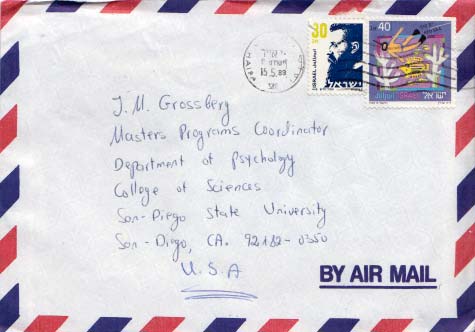 30
40
ISRAEL
ישראל
ISRAEL
ישראל
HAIFA
15.5.89
J.M. Grossberg
Masters Programs Coordinator
Department of Psychology
College of Sciences
San-Diego State University
San-Diego, CA. 92182-0350
U.S.A
BY AIR MAIL